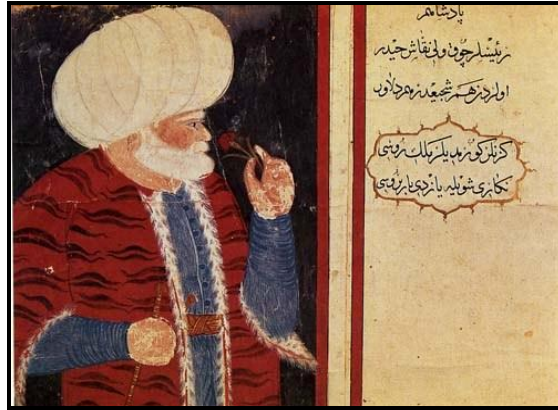 پادشاهم
رئیسلر چوق ولی نقاش حیدر
اولردر هم شجیعدر هم دلاور
کرنلر کورمدیلر ملك روسی
نکاری شویله یازدی